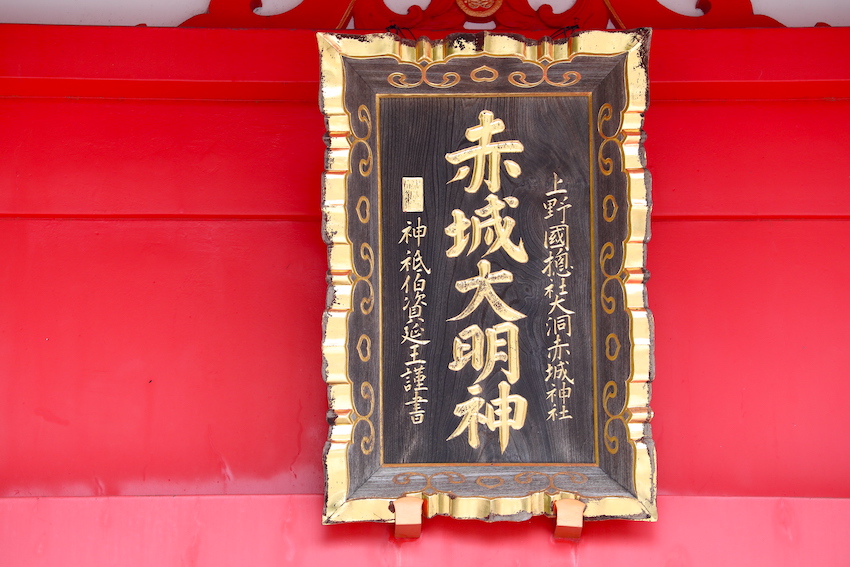 上野國揔社大洞赤城神社
赤城大明神
神祗伯資延王謹書